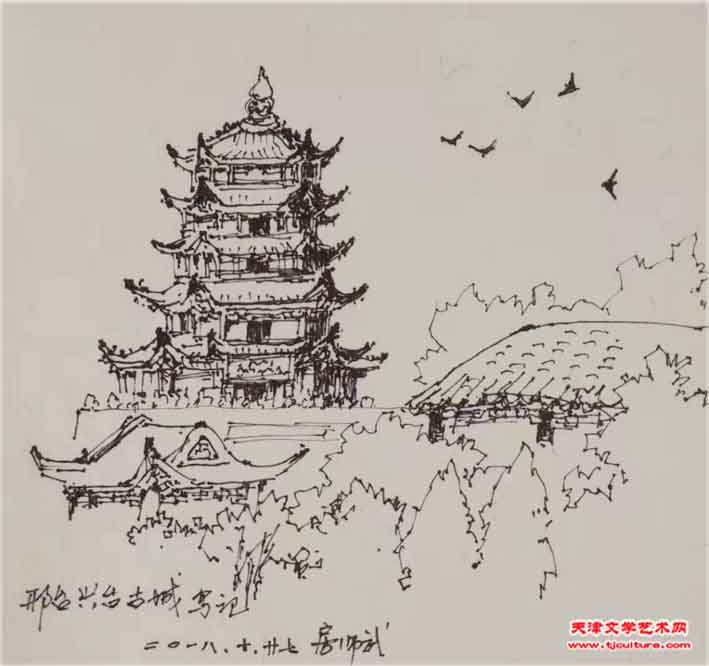 邢台兴台古城写记
二〇一八.十.廿七 房师武
天津文学艺术网
www.tjculture.com